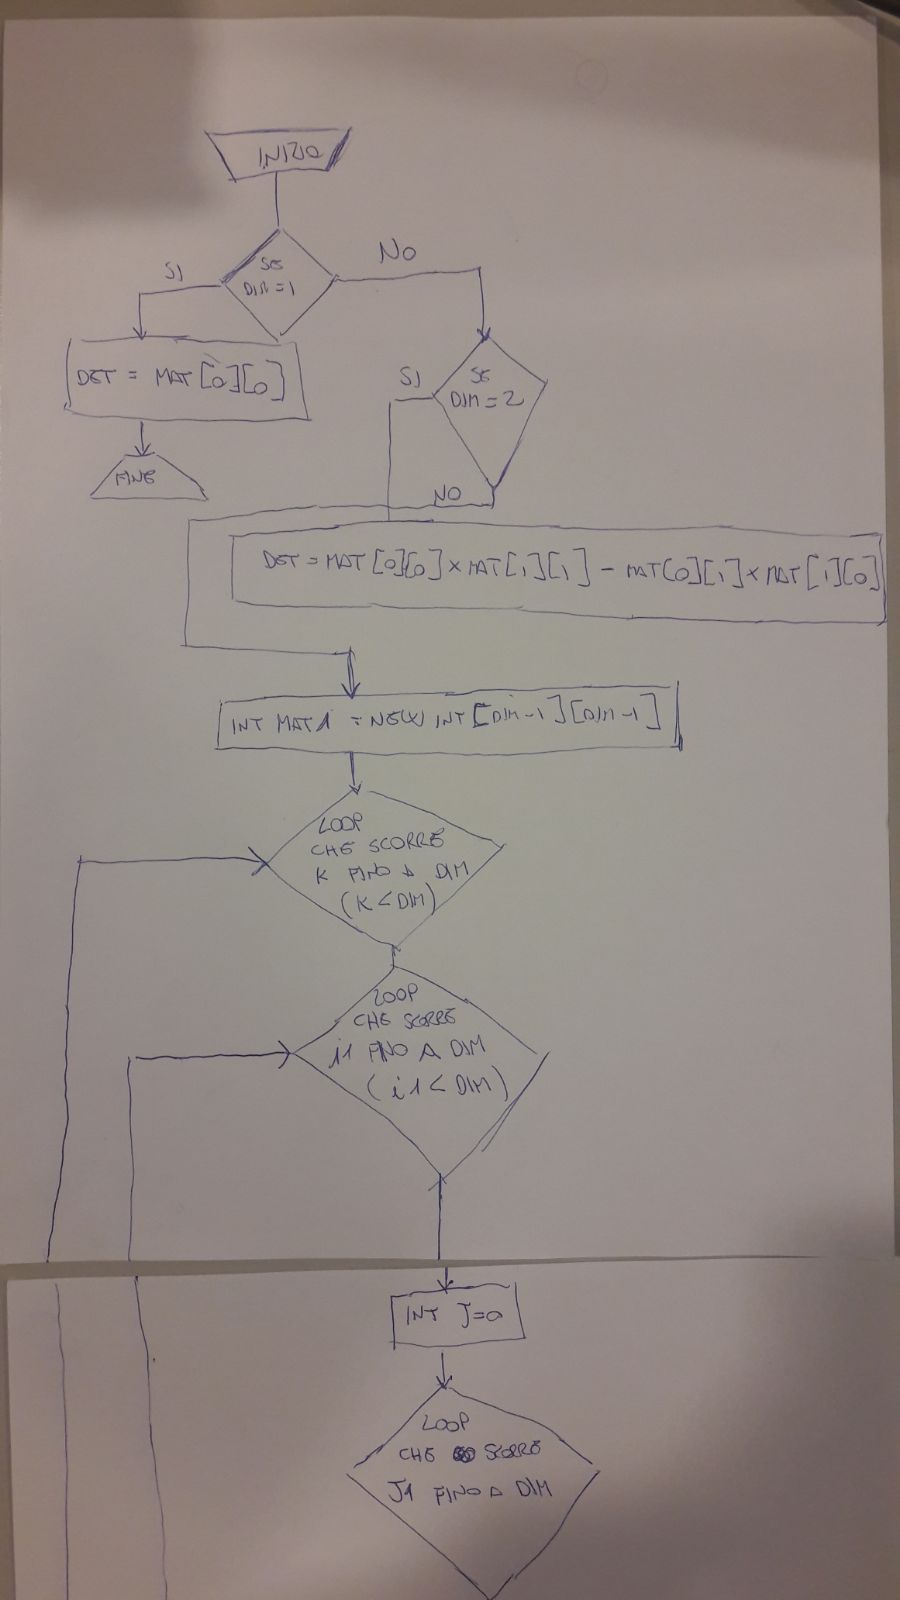 INIZIO
SE
DIM=1
SI
NO
DET = MAT[0][0]
FINE
SE
DIM=2
SI
NO
DET = MAT[0][0] × MAT[1][1] - MAT[0][1] × MAT[1][0]
INT MAT1 = NEW INT[DIM-1][DIM-1]
LOOP
CHE SCORRE
K FINO A DIM
(K<DIM)
LOOP
CHE SCORRE
i1 FINO A DIM
(i1<DIM)
INT J=0
LOOP
CHE SCORRE
J1 FINO A DIM